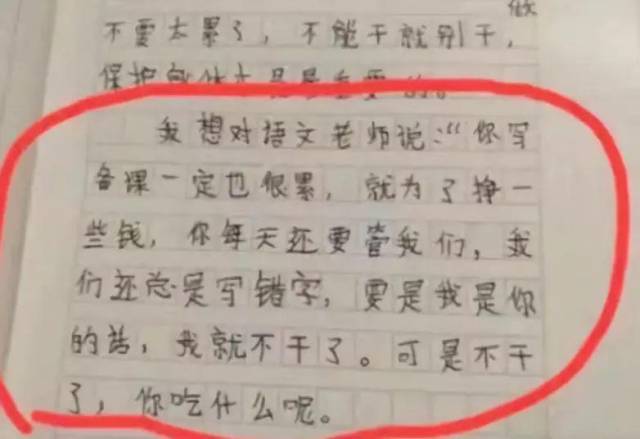 做
不要太累了，不能干就别干，
保护身体才是最重要的。
我想对语文老师说：“你写
备课一定也很累，就为了挣一
些钱，你每天还要管我们，我
们还总是写错字，要是我是你
的话，我就不干了。可是不干
了，你吃什么呢。